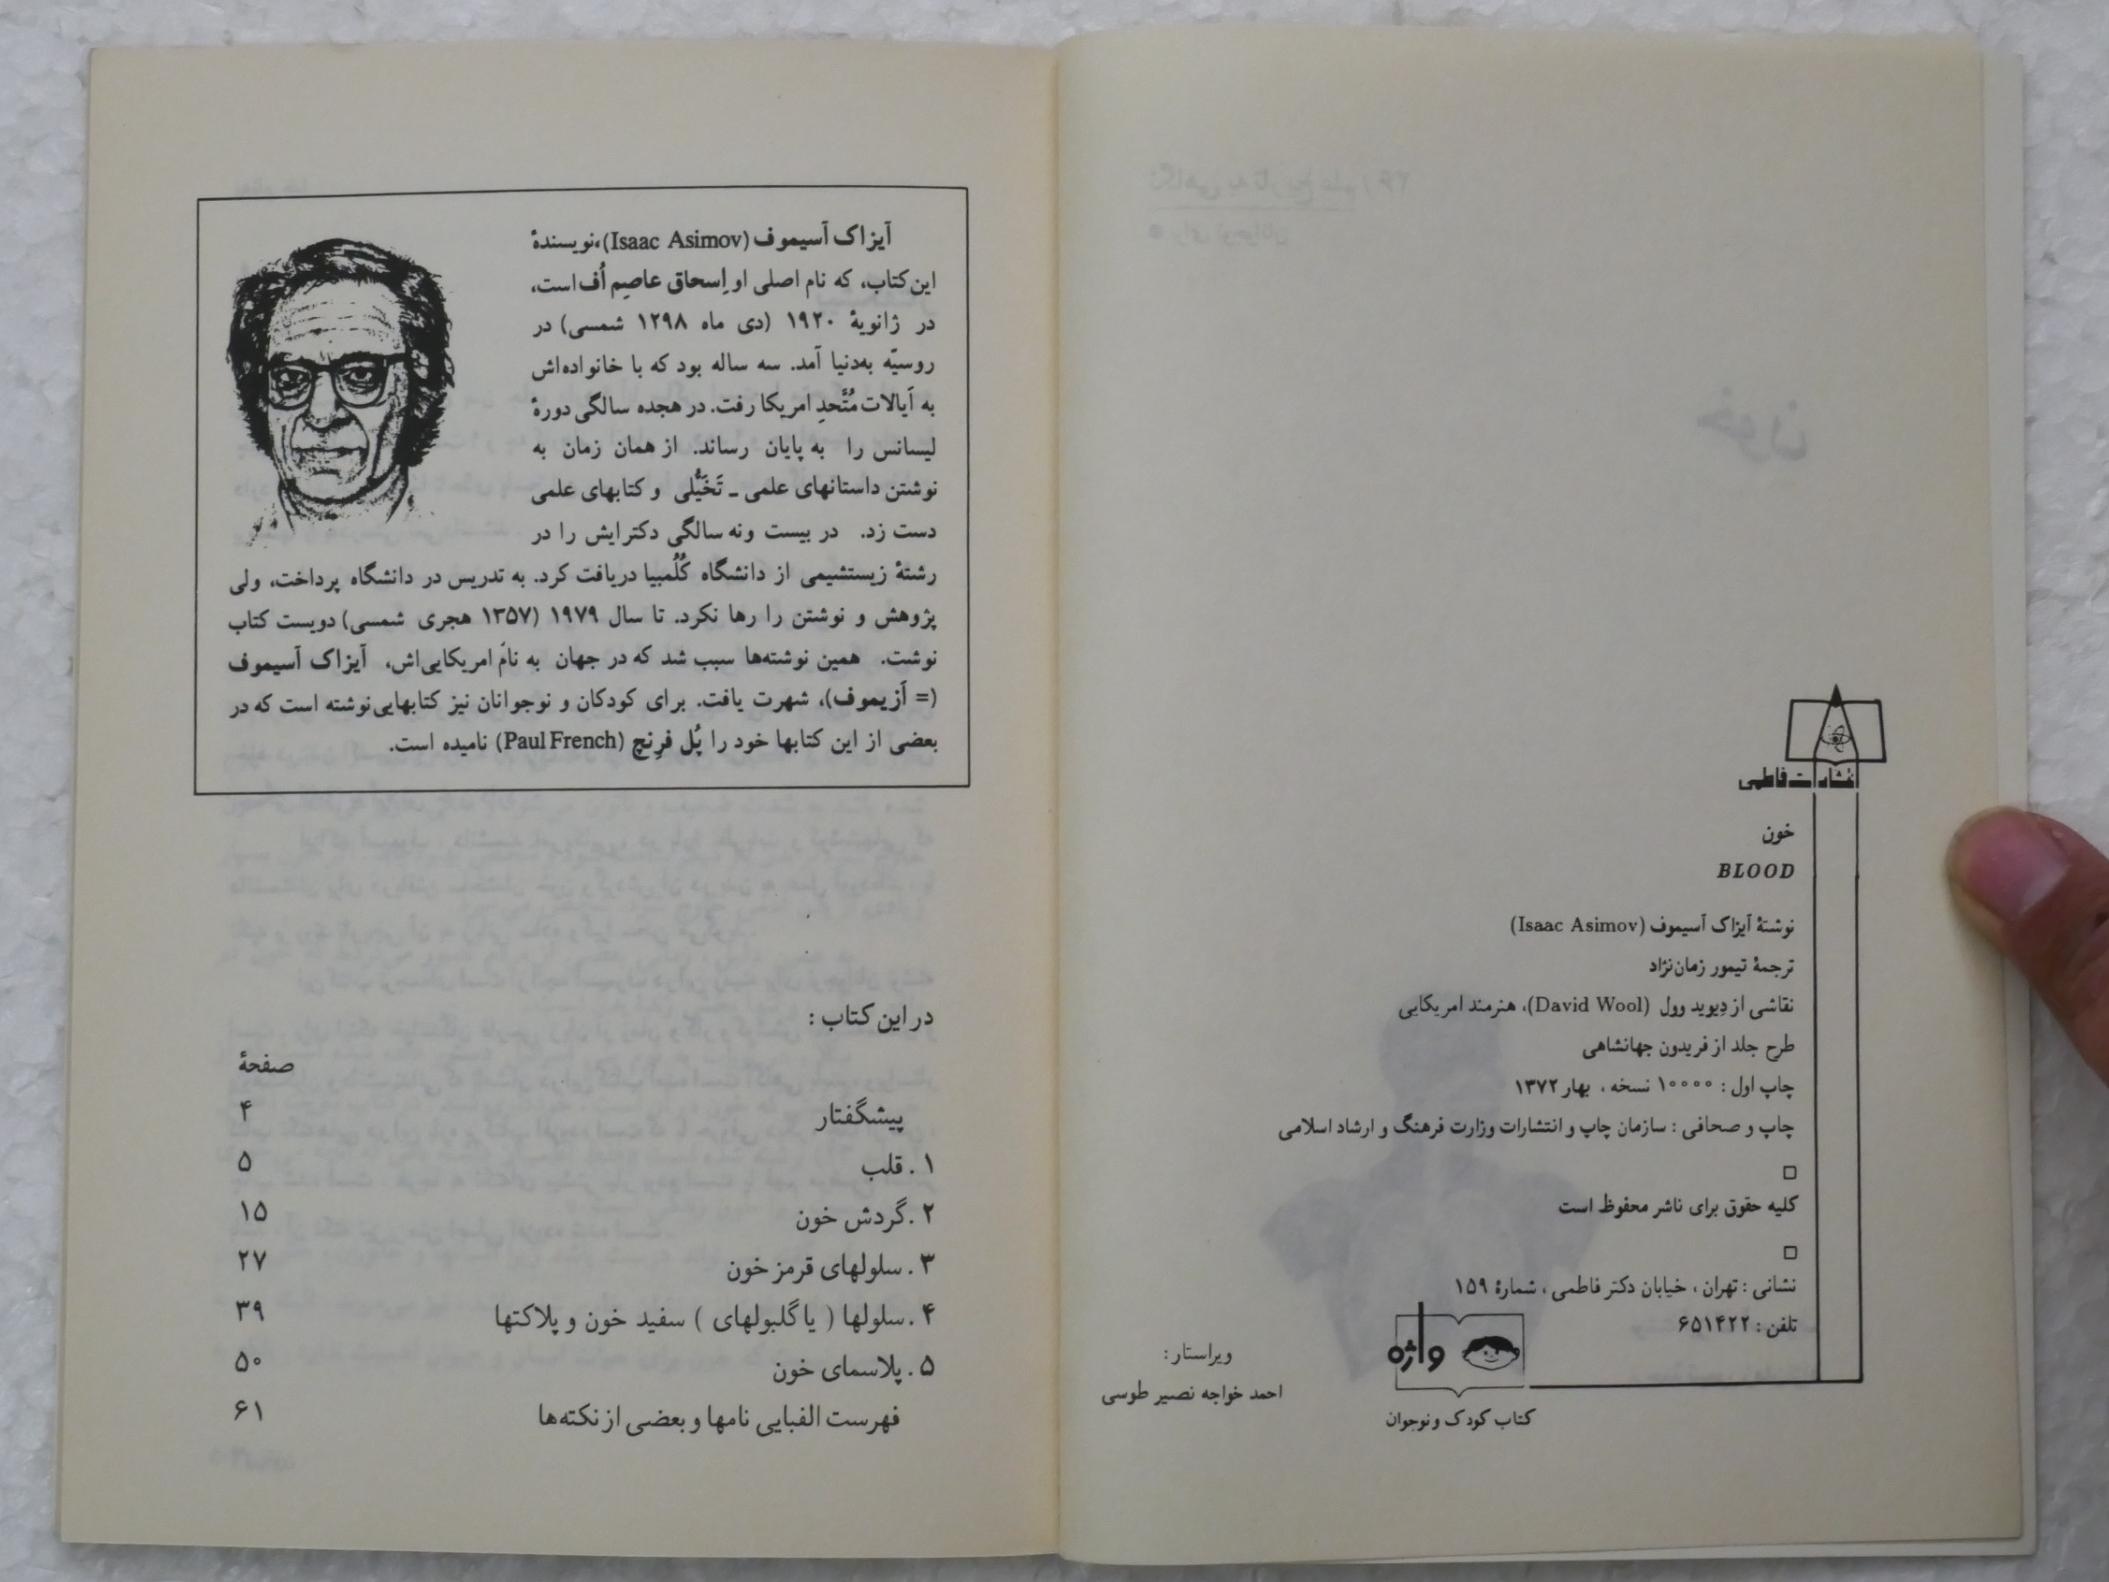 انتشارات فاطمی
خون
BLOOD
نوشتهٔ آیزاک آسیموف (Isaac Asimov)
ترجمهٔ تیمور زمان‌نژاد
نقاشی از دِیوید وول (David Wool)، هنرمند امریکایی
طرح جلد از فریدون جهانشاهی
چاپ اول : ۱۰۰۰۰ نسخه ، بهار ۱۳۷۲
چاپ و صحافی : سازمان چاپ و انتشارات وزارت فرهنگ و ارشاد اسلامی
کلیه حقوق برای ناشر محفوظ است
نشانی : تهران ، خیابان دکتر فاطمی ، شمارهٔ ۱۵۹
تلفن : ۶۵۱۴۲۲
واژه
کتاب کودک و نوجوان
ویراستار :
احمد خواجه نصیر طوسی
آیزاک آسیموف (Isaac Asimov)،نویسندهٔ
این کتاب، که نام اصلی او اِسحاق عاصِم اُف است،
در ژانویهٔ ۱۹۲۰ (دی ماه ۱۲۹۸ شمسی) در
روسیّه به‌دنیا آمد. سه ساله بود که با خانواده‌اش
به اَیالات مُتَّحدِ امریکا رفت. در هجده سالگی دورهٔ
لیسانس را به پایان رساند. از همان زمان به
نوشتن داستانهای علمی ـ تَخَیُّلی و کتابهای علمی
دست زد. در بیست ونه سالگی دکترایش را در
رشتهٔ زیستشیمی از دانشگاه کُلُمبیا دریافت کرد. به تدریس در دانشگاه پرداخت، ولی
پژوهش و نوشتن را رها نکرد. تا سال ۱۹۷۹ (۱۳۵۷ هجری شمسی) دویست کتاب
نوشت. همین نوشته‌ها سبب شد که در جهان به نامَ امریکایی‌اش، آیزاک آسیموف
(= اَزیموف)، شهرت یافت. برای کودکان و نوجوانان نیز کتابهایی‌نوشته است که در
بعضی از این کتابها خود را پُل فرِنچ (Paul French) نامیده است.
در این کتاب :
صفحهٔ
پیشگفتار ۴
۱ . قلب ۵
۲ . گردش خون ۱۵
۳ . سلولهای قرمز خون ۲۷
۴ . سلولها ( یا گلبولهای ) سفید خون و پلاکتها ۳۹
۵ . پلاسمای خون ۵۰
فهرست الفبایی نامها و بعضی از نکته‌ها ۶۱